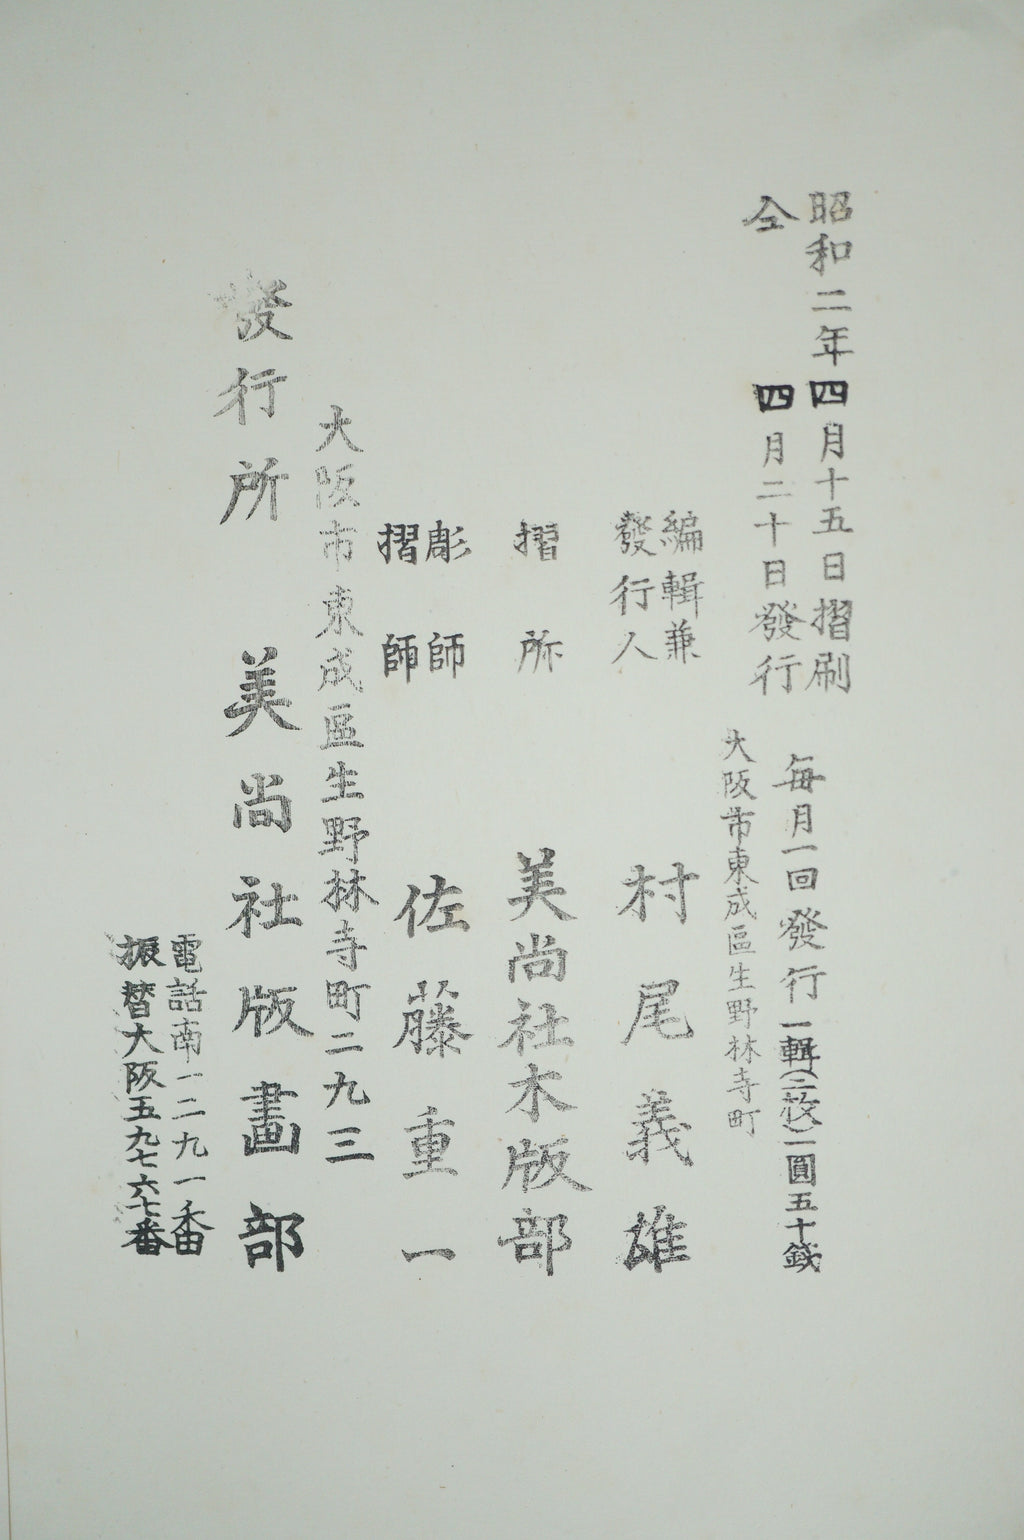 昭和二年四月十五日摺刷
仝 四月二十日發行
毎月一回發行 一輯(二枚)一圓五十錢
大阪市東成區生野林寺町
編輯兼
發行人 村尾義雄
摺所 美尚社木版部
彫師
摺師 佐藤重一
大阪市東成區生野林寺町二九三
發行所 美尚社版畫部
電話南一二九一番
振替大阪五九七六七番